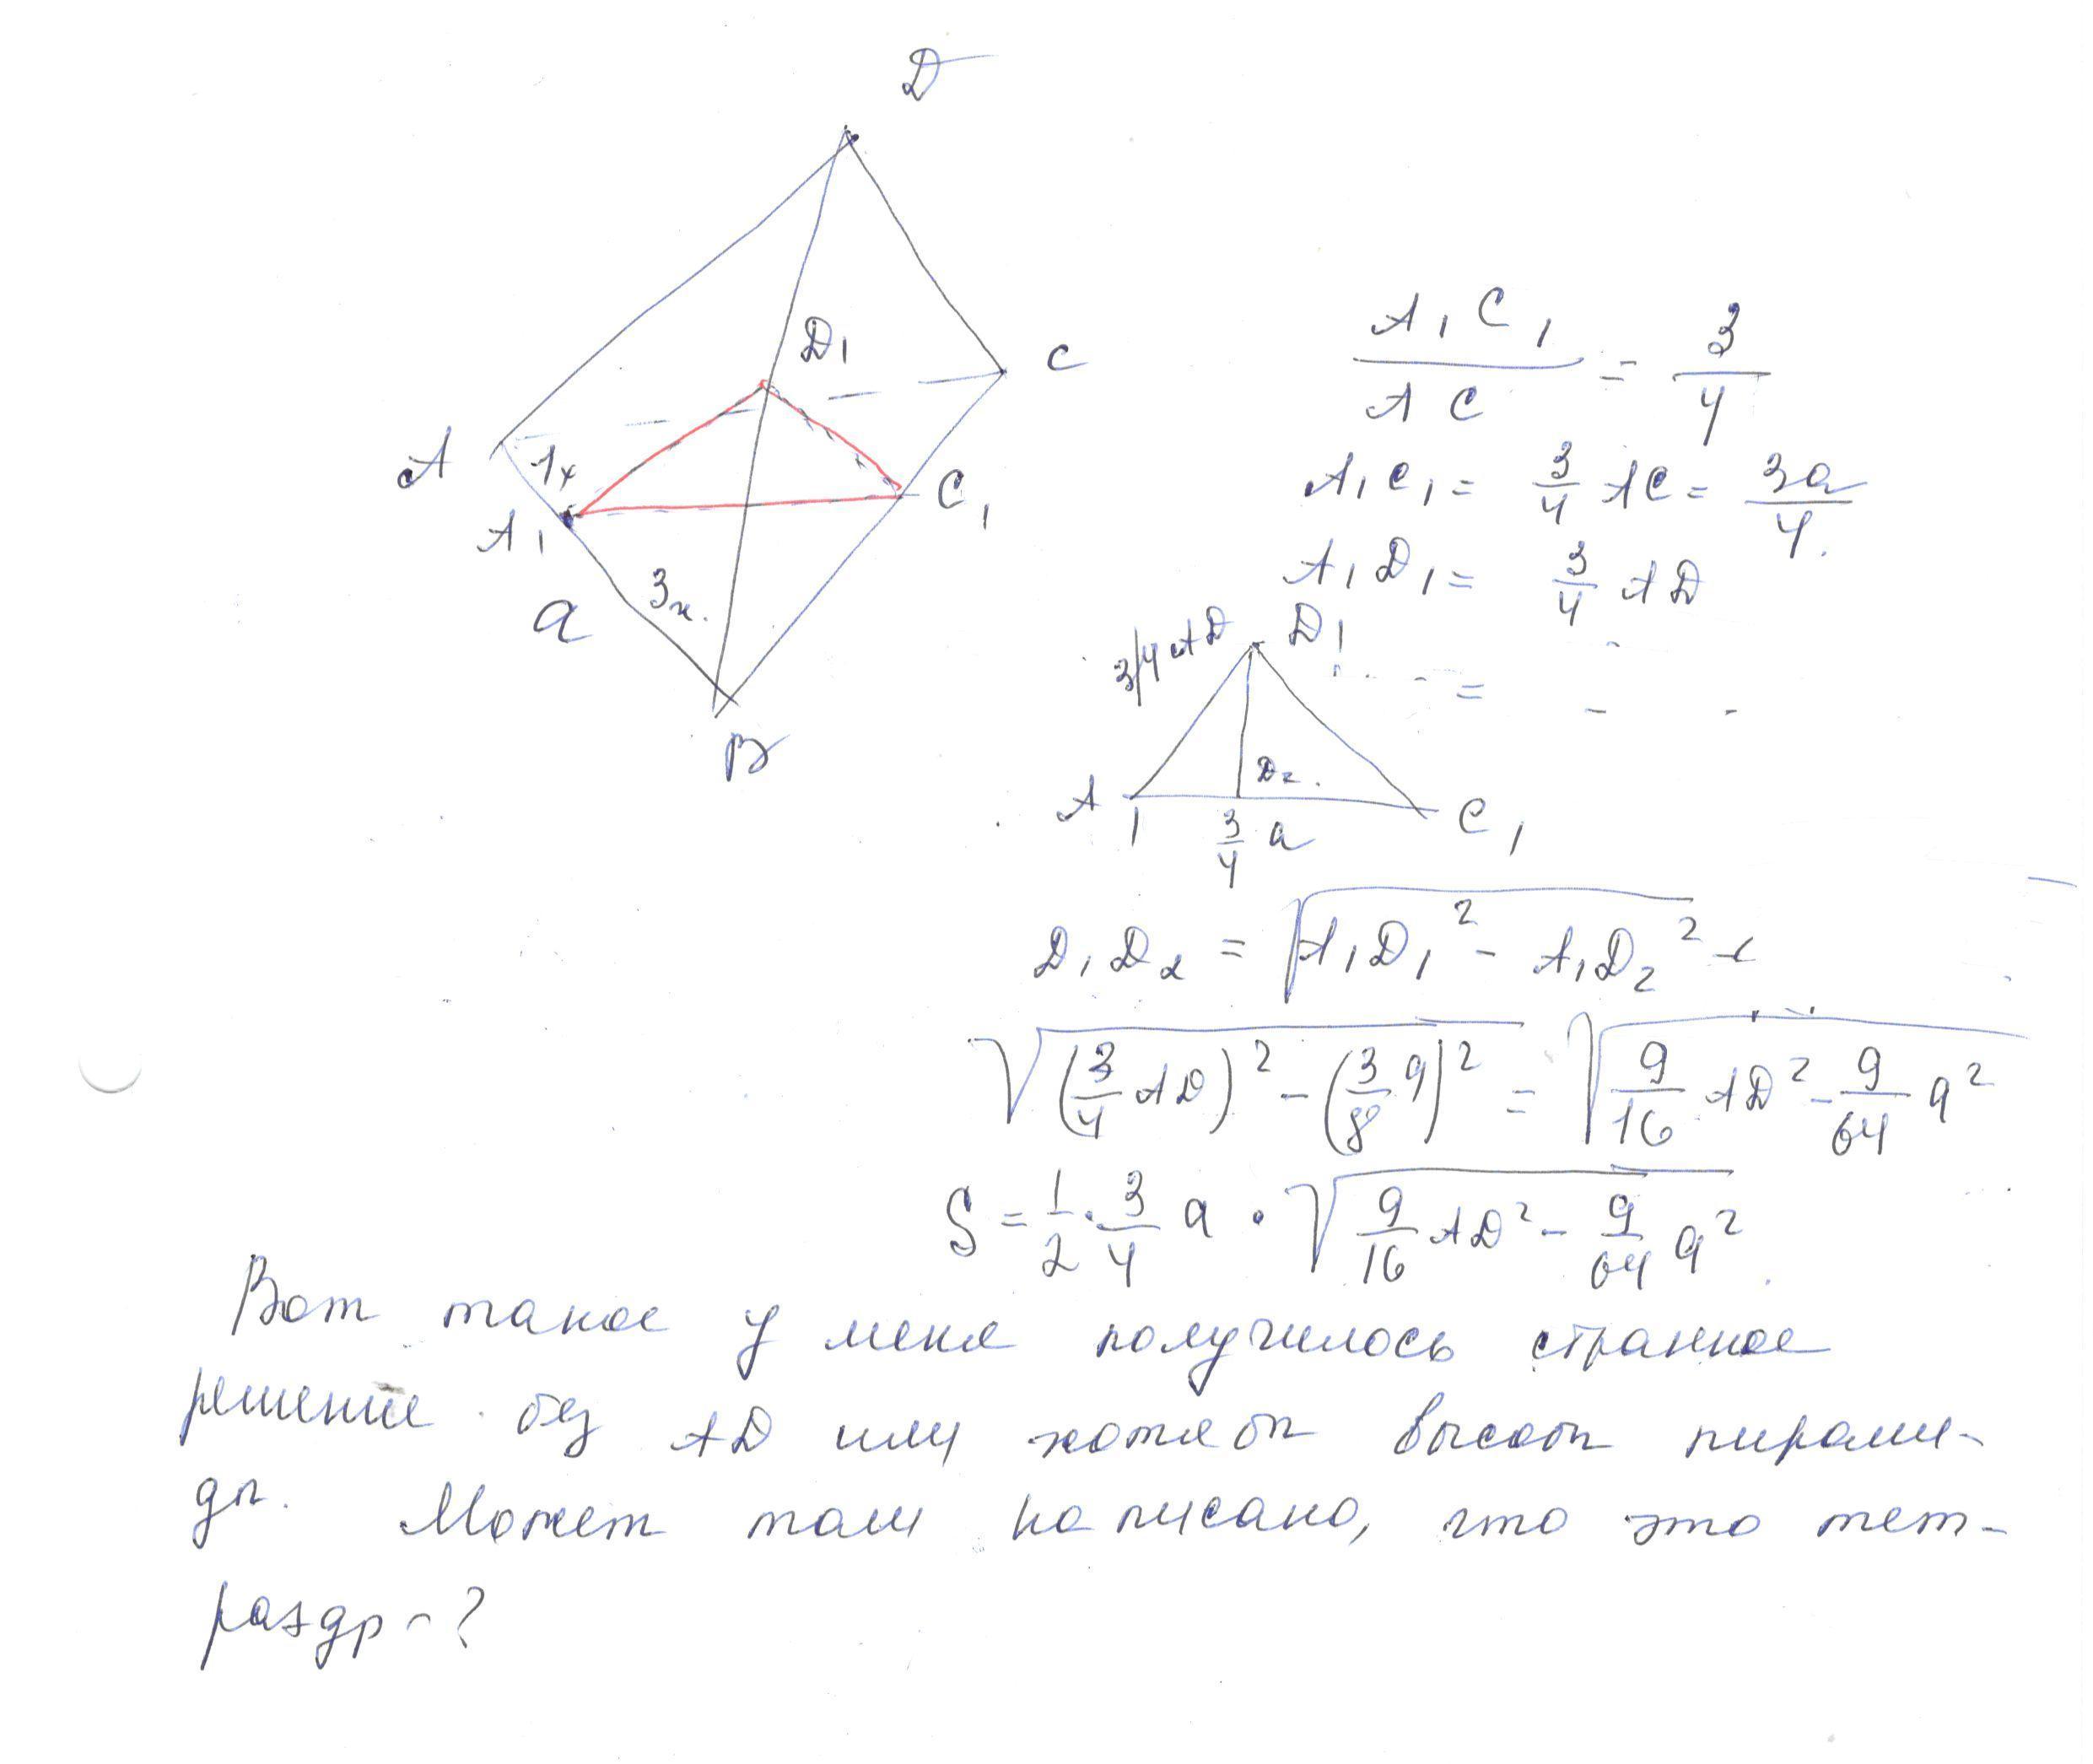 D
D₁
C
A
1x
A₁
C₁
a
3x.
B
A₁C₁/AC = 3/4
A₁C₁ = 3/4 AC = 3a/4.
A₁D₁ = 3/4 AD
3/4 AD
D₁
=
D₂.
A₁
3/4 a
C₁
D₁D₂ = √(A₁D₁² - A₁D₂²) =
√((3/4 AD)² - (3/8 a)²) = √(9/16 AD² - 9/64 a²)
S = 1/2 · 3/4 a · √(9/16 AD² - 9/64 a²)
Вот такое у меня получилось странное
решение без AD или хотя бы высоты пирами-
ды. Может там написано, что это тет-
раэдр - ?